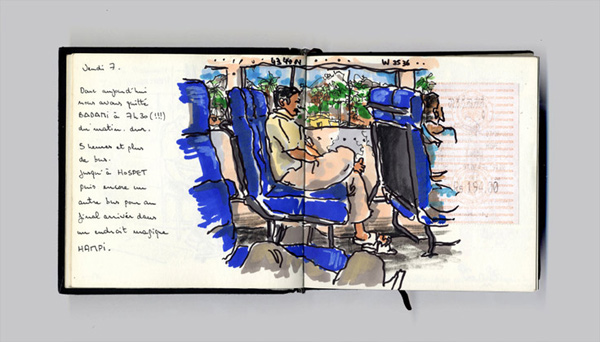 Vendi 7.
Donc aujourd'hui
nous avons quitté
BADAMI à 7h30 (!!!)
du matin. dur.
5 heures et plus
de bus.
jusqu'à HOSPET
puis encore un
autre bus pour au
final arriver dans
un endroit magique
HAMPI.
W 3536
194.00